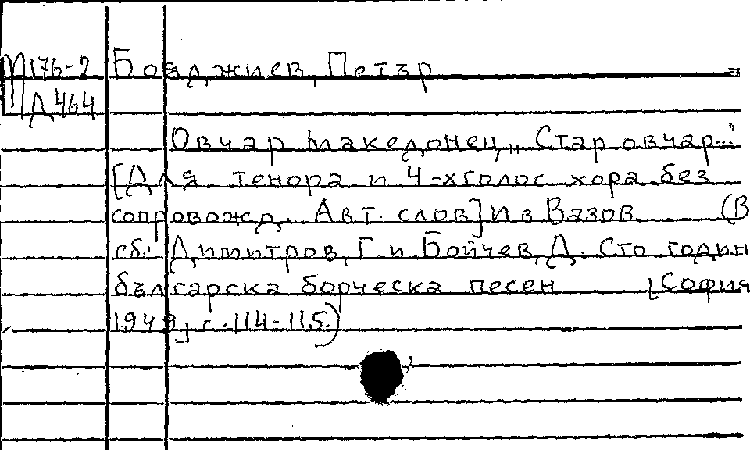 М176-2 Бояджиев, Петър
Д464
Овчар македонец „Стар овчар..."
[Для тенора и 4-хголос. хора без
сопровожд. Авт. слов] Из Вазов (В
сб: Димитров, Г и Бойчев, Д. Сто годин
българска борческа песен [София
1949, с. 114-115.)